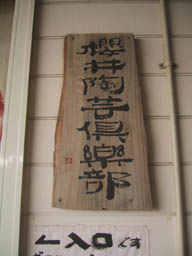 櫻井陶芸倶樂部
入口